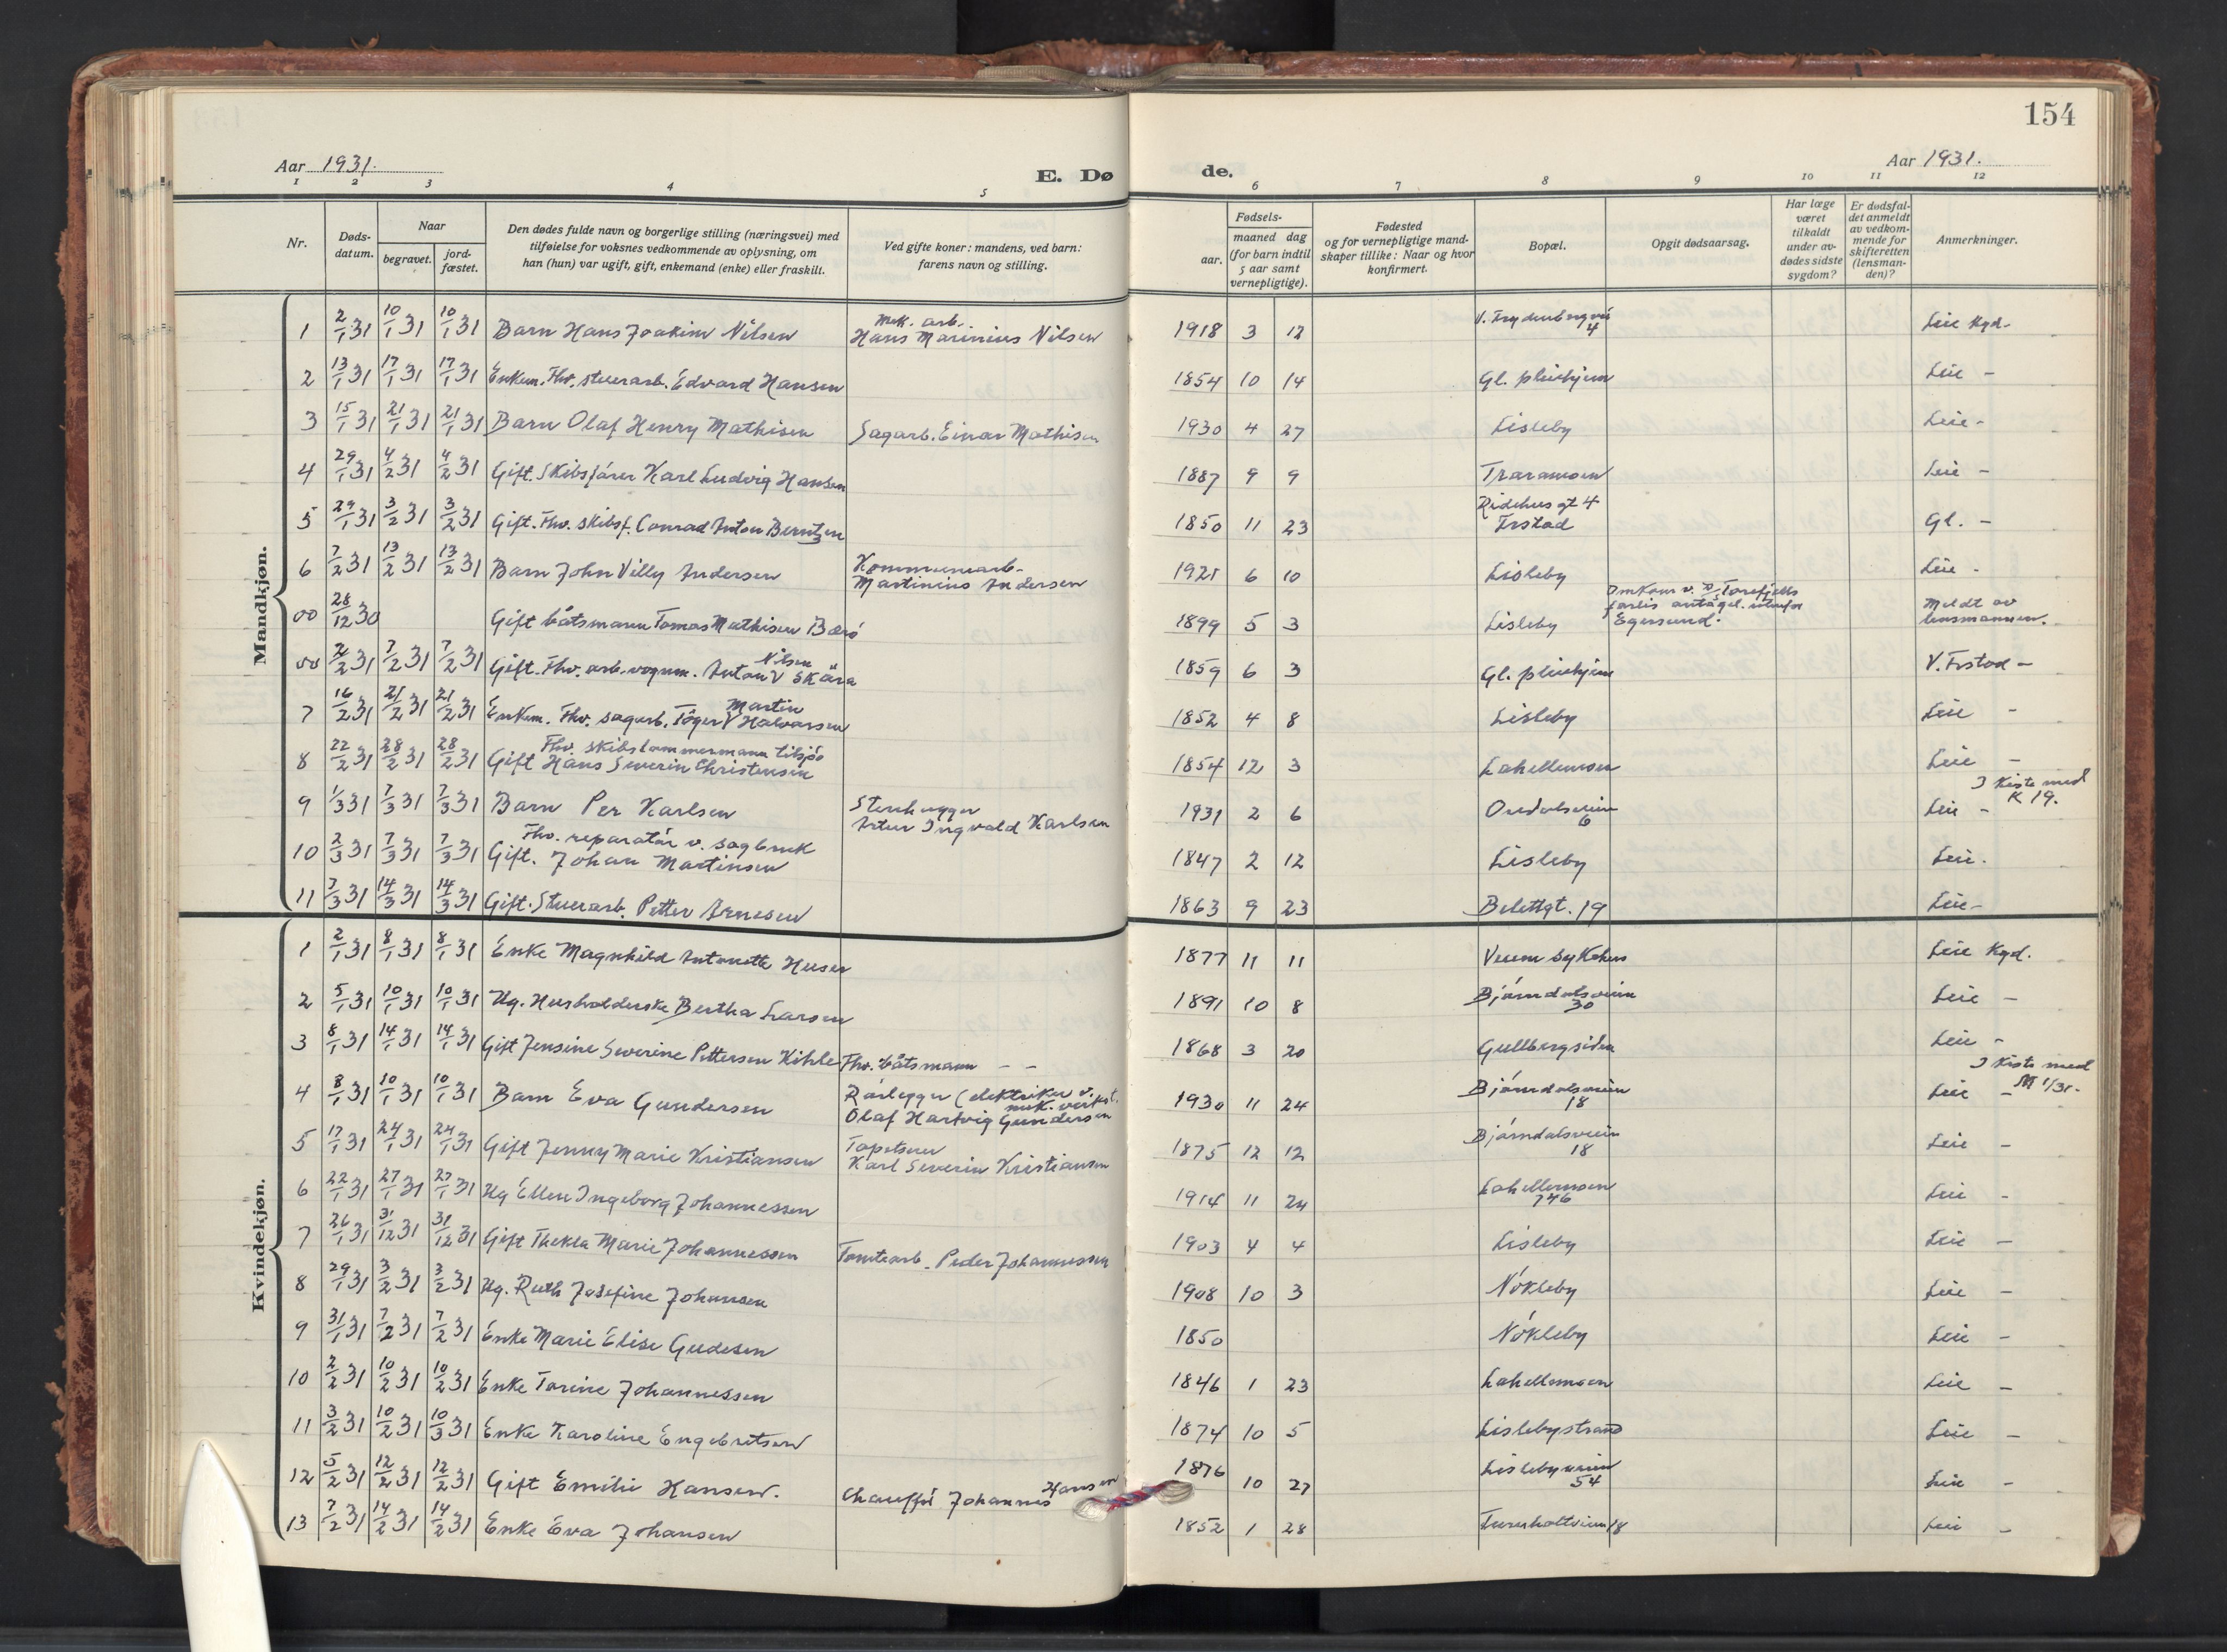 154
Aar 1931. E. Dø de. Aar 1931.
1 2 3 4 5 6 7 8 9 10 11 12
Nr.
Døds-
datum.
Naar
begravet.
jord-
fæstet.
Den dødes fulde navn og borgerlige stilling (næringsvei) med
tilføielse for voksnes vedkommende av oplysning, om
han (hun) var ugift, gift, enkemand (enke) eller fraskilt.
Ved gifte koner: mandens, ved barn:
farens navn og stilling.
Fødsels-
aar.
maaned dag
(for barn indtil
5 aar samt
vernepligtige).
Fødested
og for vernepligtige mand-
skaper tillike: Naar og hvor
konfirmert.
Bopæl.
Opgit dødsaarsag.
Har læge
været
tilkaldt
under av-
dødes sidste
sygdom?
Er dødsfal-
det anmeldt
av vedkom-
mende for
skifteretten
(lensman-
den)?
Anmerkninger.
Mandkjøn.
1 2/1 31 10/1 31 10/1 31 Barn Hans Joakim Nilsen mek. arb. Hans Marinius Nilsen 1918 3 12 4 Leie Kgd.
2 13/1 31 17/1 31 17/1 31 Enkem. Fhv. stuerarb. Edvard Hansen 1854 10 14 Gl. pleiehjem Leie -
3 15/1 31 21/1 31 21/1 31 Barn Olaf Henry Mathisen Sagarb. Einar Mathisen 1930 4 27 Lisleby Leie -
4 29/1 31 4/2 31 4/2 31 Gift. Skibsfører Karl Ludvig Hansen 1887 9 9 Traramoen Leie -
5 29/1 31 3/2 31 3/2 31 Gift. Fhv. skibsf. Conrad Anton Berntzen 1850 11 23 Ridehusgt 4 Frstad Gl. -
6 7/2 31 13/2 31 13/2 31 Barn John Villy Andersen Kommunearb. Martinius Andersen 1921 6 10 Lisleby Leie -
00 28/12 30 Gift båtsmann Tomas Mathisen Bærø 1899 5 3 Lisleby Omkom v. D/S Torefjells forlis antagel. utenfor Egersund. Meldt av lensmannen.
00 2/2 31 7/2 31 7/2 31 Gift. Fhv. arb. vognm. Anton Nilsen Skåra 1859 6 3 Gl. pleiehjem V. Frstad -
7 16/2 31 21/2 31 21/2 31 Enkem. Fhv. sagarb. Töger Martin Halvorsen 1852 4 8 Lisleby Leie -
8 22/2 31 28/2 31 28/2 31 Gift Fhv. skibstømmermann tilsjøs Hans Severin Christensen 1854 12 3 Lahellemoen Leie -
9 1/3 31 7/3 31 7/3 31 Barn Per Karlsen Stenhugger Artur Ingvald Karlsen 1931 2 6 Ordalsveien 6 Leie - I kiste med K 19.
10 2/3 31 7/3 31 7/3 31 Gift. Fhv. reparatør v. sagbruk Johan Martinsen 1847 2 12 Lisleby Leie.
11 7/3 31 14/3 31 14/3 31 Gift. Stuerarb. Petter Arnesen 1863 9 23 Belettgt. 19 Leie -
Kvindekjøn.
1 2/1 31 8/1 31 8/1 31 Enke Magnhild Antonette Huser 1877 11 11 Veum Sykehus Leie Kgd.
2 5/1 31 10/1 31 10/1 31 Ug. Husholderske Bertha Larsen 1891 10 8 Bjørndalsveien 30 Leie -
3 8/1 31 14/1 31 14/1 31 Gift Jensine Severine Pettersen Kihle Fhv. båtsmann - - 1868 3 20 Gullbergsiden Leie -
4 8/1 31 10/1 31 10/1 31 Barn Eva Gundersen Rørlegger (elektriker v. mek. verkst. Olaf Hartvig Gundersen 1930 11 24 Bjørndalsveien 18 Leie - I kiste med M 1/31.
5 17/1 31 24/1 31 24/1 31 Gift Jenny Marie Kristiansen Tapetserer Karl Severin Kristiansen 1875 12 12 Bjørndalsveien 18 Leie -
6 22/1 31 27/1 31 27/1 31 Ug Ellen Ingeborg Johannessen 1914 11 24 Lahellemoen 746 Leie -
7 26/1 31 31/12 31 31/12 31 Gift Thekla Marie Johannessen Tomtearb. Peder Johannessen 1903 4 4 Lisleby Leie -
8 29/1 31 3/2 31 3/2 31 Ug. Ruth Josefine Johansen 1908 10 3 Nøkleby Leie -
9 31/1 31 7/2 31 7/2 31 Enke Marie Elise Gudesen 1850 Nøkleby Leie -
10 2/2 31 10/2 31 10/2 31 Enke Torine Johannessen 1846 1 23 Lahellemoen Leie -
11 3/2 31 10/2 31 10/3 31 Enke Karoline Engebretsen 1874 10 5 Lislebystrand Leie -
12 5/2 31 12/2 31 12/2 31 Gift Emilie Hansen. Chauffør Johannes Hansen 1876 10 27 Lislebyveien 54 Leie -
13 7/2 31 14/2 31 14/2 31 Enke Eva Johansen 1852 1 28 18 Leie -